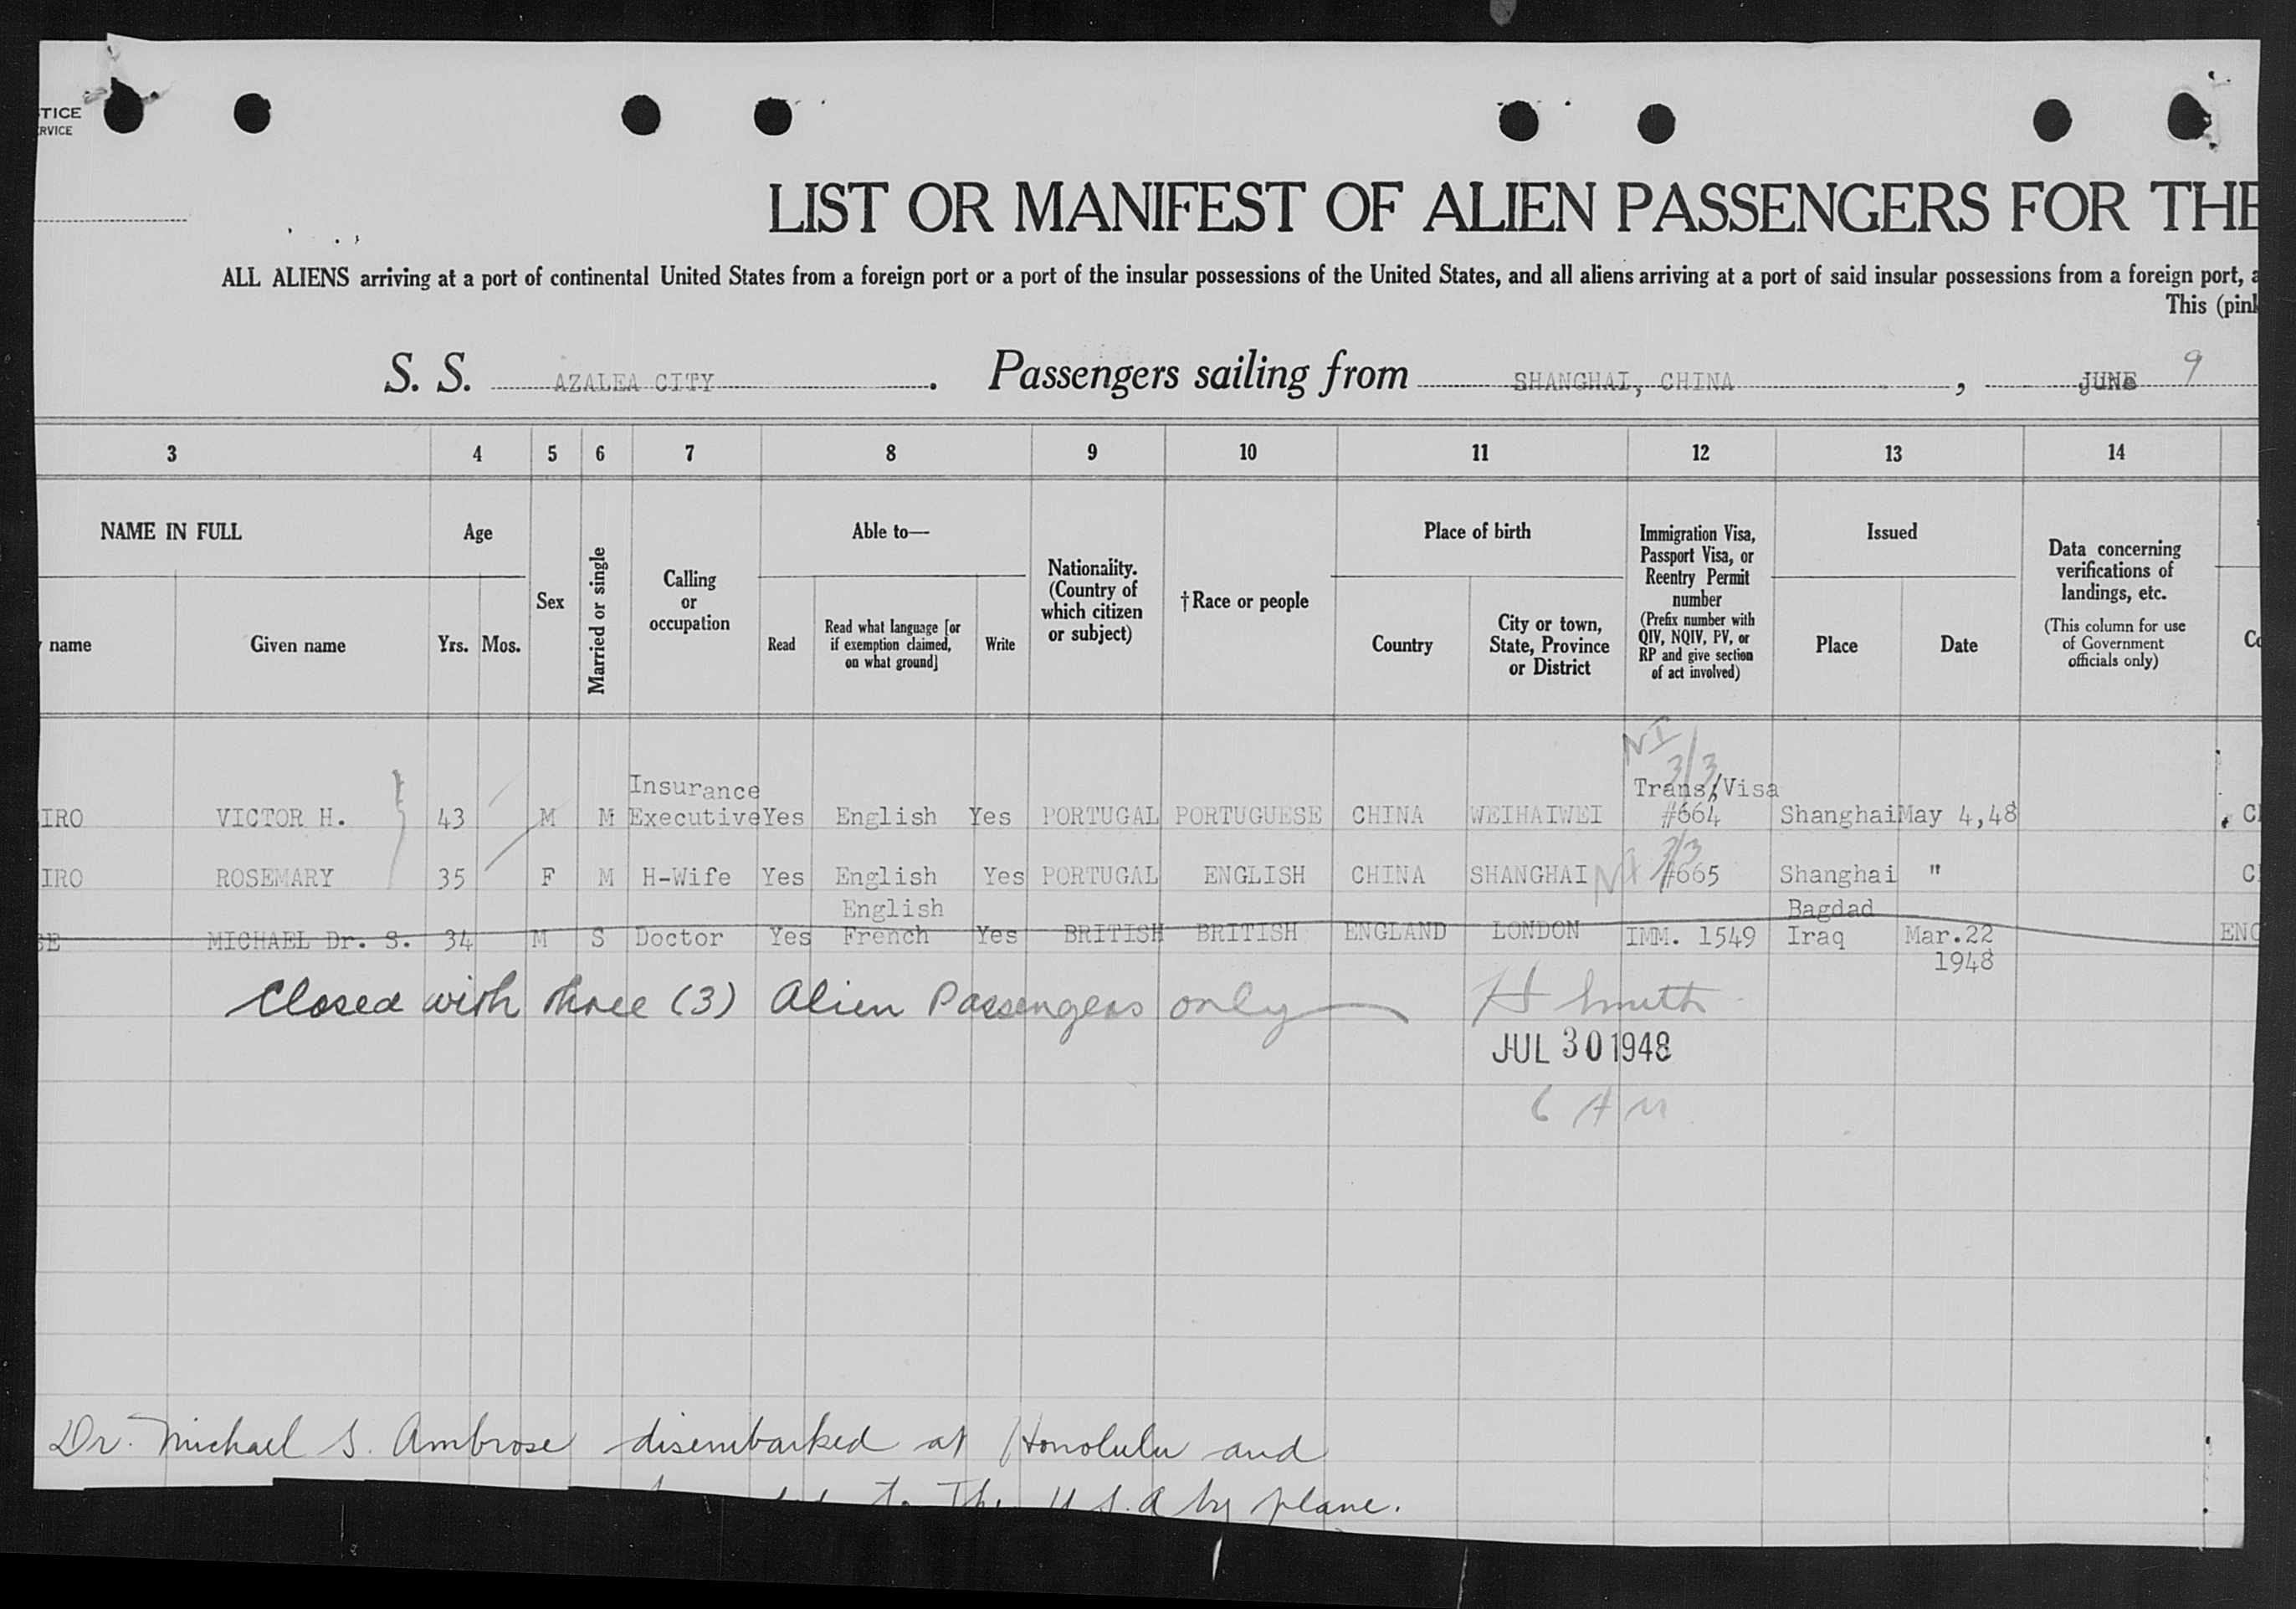 TICE
RVICE
LIST OR MANIFEST OF ALIEN PASSENGERS FOR THE
ALL ALIENS arriving at a port of continental United States from a foreign port or a port of the insular possessions of the United States, and all aliens arriving at a port of said insular possessions from a foreign port, a
This (pink
S. S. AZALEA CITY. Passengers sailing from SHANGHAI, CHINA, JUNE 9
3 4 5 6 7 8 9 10 11 12 13 14
NAME IN FULL
name
Given name
Age
Yrs. Mos.
Sex
Married or single
Calling
or
occupation
Able to—
Read
Read what language [or
if exemption claimed,
on what ground]
Write
Nationality.
(Country of
which citizen
or subject)
†Race or people
Place of birth
Country
City or town,
State, Province
or District
Immigration Visa,
Passport Visa, or
Reentry Permit
number
(Prefix number with
QIV, NQIV, PV, or
RP and give section
of act involved)
Issued
Place
Date
Data concerning
verifications of
landings, etc.
(This column for use
of Government
officials only)
Co
NI
3/3
Insurance Trans/Visa
IRO VICTOR H. 43 M M Executive Yes English Yes PORTUGAL PORTUGUESE CHINA WEIHAIWEI #664 Shanghai May 4,48 C
3/3
IRO ROSEMARY 35 F M H-Wife Yes English Yes PORTUGAL ENGLISH CHINA SHANGHAI NI #665 Shanghai " C
English Bagdad
SE MICHAEL Dr. S. 34 M S Doctor Yes French Yes BRITISH BRITISH ENGLAND LONDON IMM. 1549 Iraq Mar.22 ENG
1948
Closed with three (3) Alien Passengers only H Smith
JUL 30 1948
6 AM
Dr. Michael S. Ambrose disembarked at Honolulu and
to The U.S.A by plane.